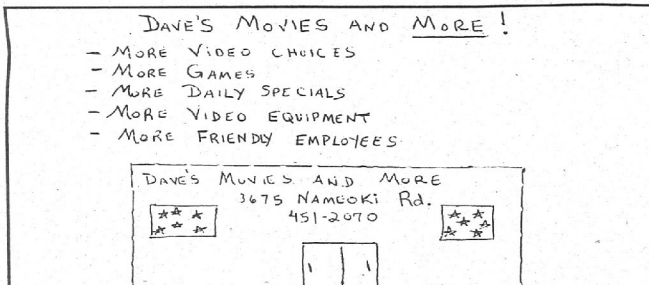 DAVE'S MOVIES AND MORE!
- MORE VIDEO CHOICES
- MORE GAMES
- MORE DAILY SPECIALS
- MORE VIDEO EQUIPMENT
- MORE FRIENDLY EMPLOYEES
DAVE'S MOVIES AND MORE
3675 NAMEOKI Rd.
451-2070